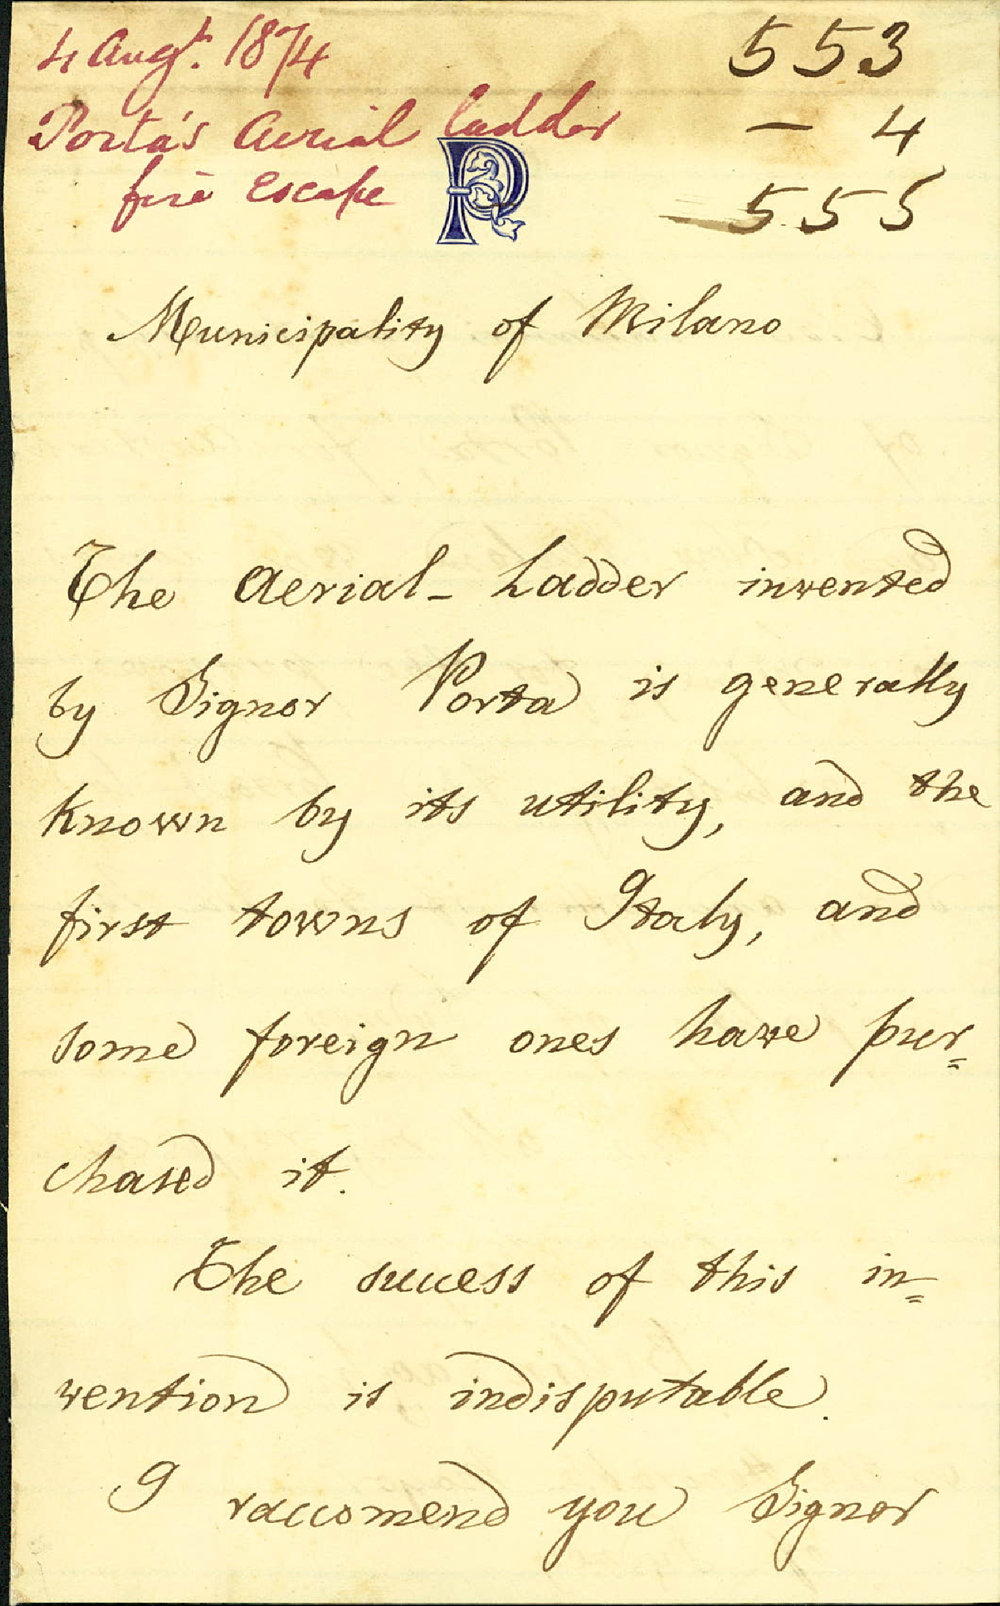 4 Augt. 1874
553
Porta's Aerial ladder
— 4
fire Escape
PR
555
Municipality of Milano
The Aerial- Ladder invented
by Signor Porta is generally
known by its utility, and the
first towns of Italy, and
some foreign ones have pur=
chased it.
The sucess of this in=
vention is indisputable.
I raccomend you Signor